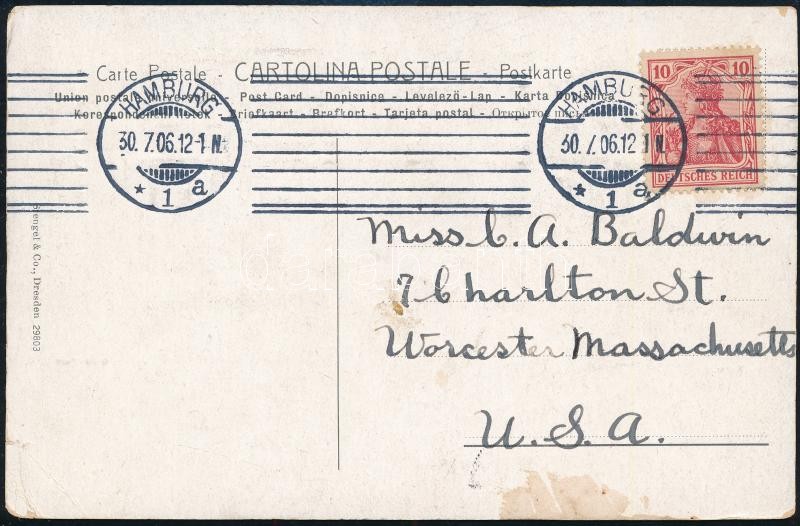 Carte Postale - CARTOLINA POSTALE - Postkarte
Union postale universelle Post Card - Dopisnice - Levelező-Lap - Karta
Briefkaart - Brefkort - Tarjeta postal - Открытое
HAMBURG
30.7.06.12-1 N.
* 1 a
HAMBURG
30.7.06.12-1 N.
* 1 a
10 10
DEUTSCHES REICH
Miss C. A. Baldwin
7 Charlton St.
Worcester Massachusetts
U.S.A.
Stengel & Co., Dresden 29803